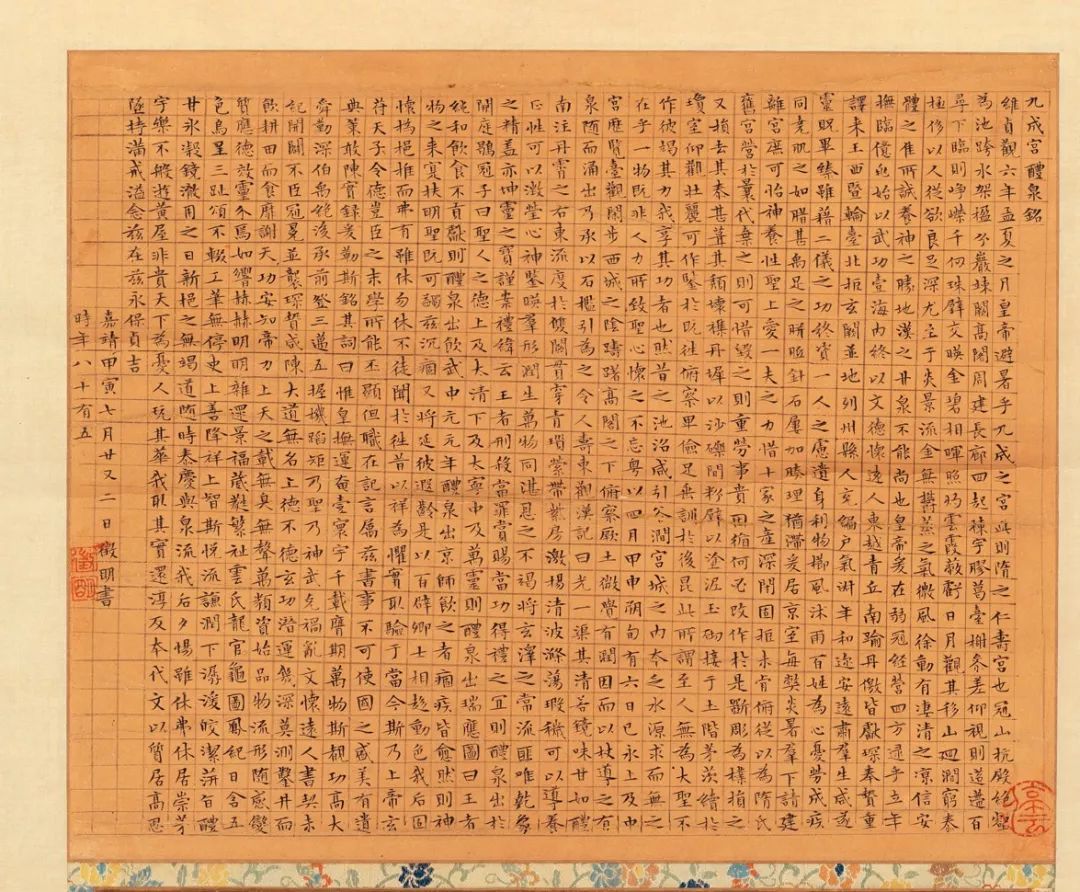 九成宮醴泉銘
維貞觀六年孟夏之月皇帝避暑乎九成之宮此則隋之仁壽宮也冠山抗殿絕壑
為池跨水架楹分巖竦闕高閣周建長廊四起棟宇膠葛臺榭參差仰視則迢遰百
尋下臨則崢嶸千仞珠壁交暎金碧相暉照灼雲霞蔽虧日月觀其移山迴澗窮泰
極侈以人從欲良足深尤至于炎景流金無鬱蒸之氣微風徐動有凄清之涼信安
體之佳所誠養神之勝地漢之甘泉不能尚也皇帝爰在弱冠經營四方逮乎立年
撫臨億兆始以武功壹海內終以文德懷遠人東越青丘南踰丹徼皆獻琛奉贄重
譯來王西暨輪臺北拒玄闕並地列州縣人充編戶氣淑年和迩安遠肅羣生咸遂
靈貺畢臻雖藉二儀之功終資一人之慮遺身利物櫛風沐雨百姓為心憂勞成疾
同堯肌之如腊甚禹足之胼胝針石屢加腠理猶滯爰居京室每弊炎暑羣下請建
離宮庶可怡神養性聖上愛一夫之力惜十家之產深閉固拒未肯俯從以為隋氏
舊宮營於曩代棄之則可惜毀之則重勞事貴因循何必改作於是斲彫為樸損之
又損去其泰甚葺其頹壞雜丹墀以沙礫間粉壁以塗泥玉砌接于土階茅茨續於
瓊室仰觀壯麗可作鑒於既往俯察卑儉足垂訓於後昆此所謂至人無為大聖不
作彼竭其力我享其功者也然昔之池沼咸引谷澗宮城之內本乏水源求而無之
在乎一物既非人力所致聖心懷之不忘粵以四月甲申朔旬有六日己亥上及中
宮歷覽臺觀閑步西城之陰躊躇高閣之下俯察厥土微覺有潤因而以杖導之有
泉随而涌出乃承以石檻引為之令人壽東觀漢記曰光一渠其清若鏡味甘如醴
南注丹霄之右東流度於雙闕貫穿青瑣縈帶紫房激揚清波滌蕩瑕穢可以導養
正性可以澂瑩心神鑒暎羣形潤生萬物同湛恩之不竭將玄澤之常流匪唯乾象
之精蓋亦坤靈之寶謹案禮緯云王者刑殺當罪賞錫當功得禮之宜則醴泉出於
闕庭鶡冠子曰聖人之德上及太清下及太寧中及萬靈則醴泉出瑞應圖曰王者
純和飲食不貢獻則醴泉出飲武中元元年醴泉出京師飲之者痼疾皆愈然則神
物之來寔扶明聖既可蠲茲沉痼又將延彼遐齡是以百辟卿士相趨動色我后固
懷撝挹推而弗有雖休勿休不徒聞於往昔以祥為懼實取驗于當今斯乃上帝玄
符天子令德豈臣之末學所能丕顯但職在記言屬茲書事不可使國之盛美有遺
典策敢陳實錄爰勒斯銘其詞曰惟皇撫運奄壹寰宇千載膺期萬物斯覩功高大
舜勤深伯禹絕後承前登三邁五握機蹈矩乃聖乃神武克禍亂文懷遠人書契未
紀開闢不臣冠冕並襲琛贄咸陳大道無名上德不德玄功潛運幾深莫測鑿井而
飲耕田而食靡謝天功安知帝力上天之載無臭無聲萬類資始品物流形随感變
質應德效靈介焉如響赫赫明明雜遝景福葳蕤繁祉雲氏龍官龜圖鳳紀日含五
色烏呈三趾頌不輟工筆無停史上善降祥上智斯悅流謙潤下潺湲皎潔蓱旨醴
甘氷凝鏡澈用之日新挹之無竭道随時泰慶與泉流我后夕惕雖休弗休居崇茅
宇樂不般遊黃屋非貴天下為憂人玩其華我取其實還淳反本代文以質居高思
墜持滿戒溢念茲在茲永保貞吉
嘉靖甲寅七月廿又二日徵明書
時年八十有五